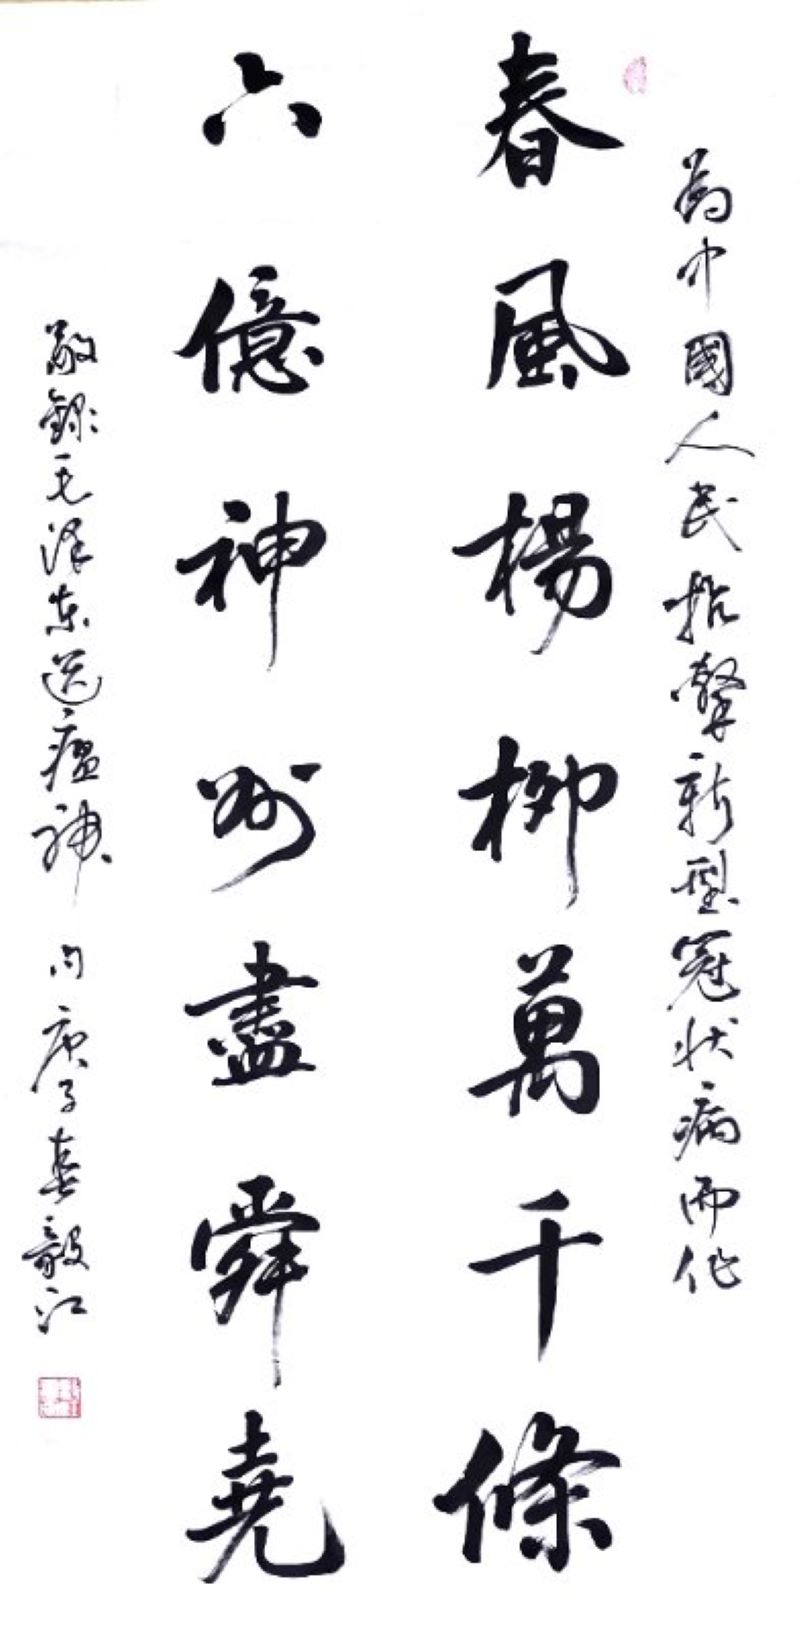 為中國人民抗擊新型冠狀病而作
春風楊柳萬千條
六億神州盡舜堯
敬錄毛澤東送瘟神句庚子春毅江